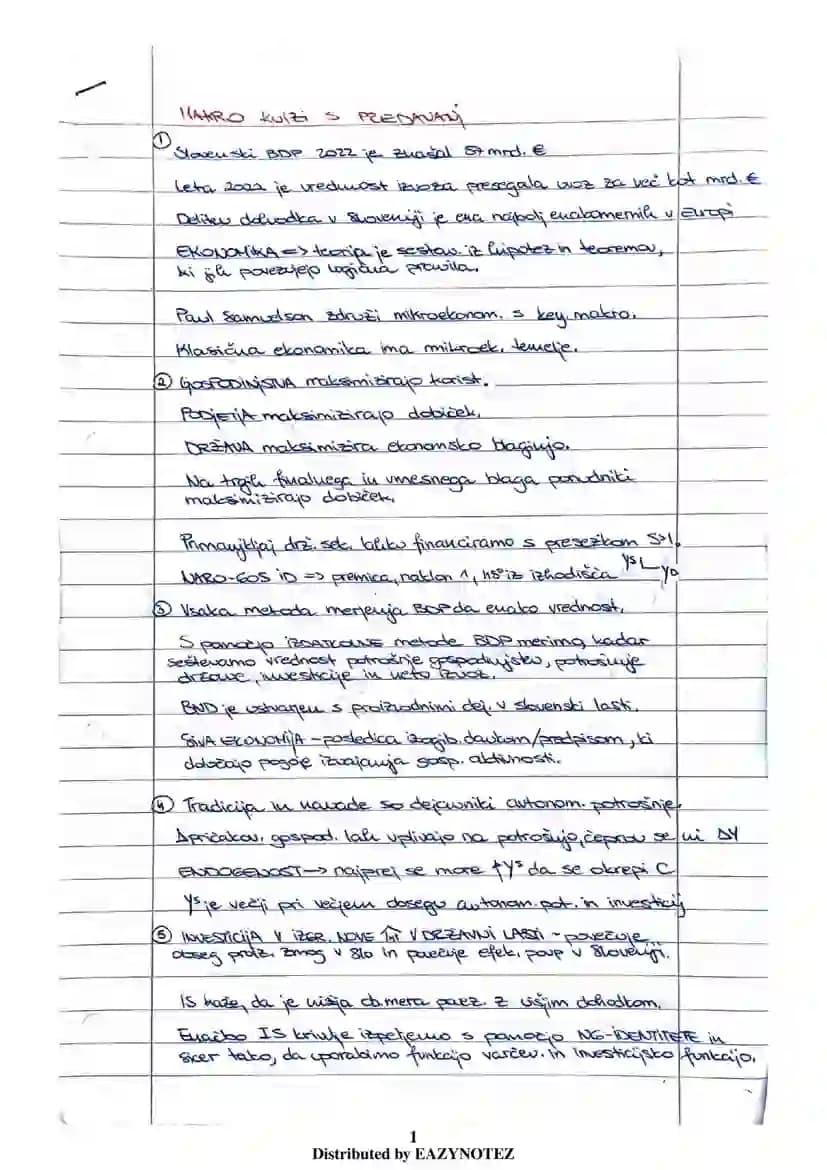 MAKRO KVIZI S PREDAVANJ
① Slovenski BDP 2022 je znašal 57 mrd. €
Leta 2022 je vrednost izvoza presegala uvoz za več kot mrd. €
Delitev dohodka v Sloveniji je ena najbolj enakomernih v Evropi
EKONOMIKA => teorija je sestav. iz hipotez in teoremov,
ki jih povezujejo logična pravila.
Paul Samuelson združi mikroekonom. s key. makro.
Klasična ekonomika ima mikroek. temelje.
② GOSPODINJSTVA maksimizirajo korist.
PODJETJA maksimizirajo dobiček.
DRŽAVA maksimizira ekonomsko blaginjo.
Na trgih finalnega in vmesnega blaga ponudniki
maksimizirajo dobiček.
Primanjkljaj drž. sek. lahko financiramo s presežkom S>I.
NARO-GOS ID => premica, naklon 1, 45° iz izhodišča YS YD
③ Vsaka metoda merjenja BDP da enako vrednost.
S pomočjo IZDATKOVNE metode BDP merimo, kadar
seštevamo vrednost potrošnje gospodinjstev, potrošnje
države, investicije in neto izvoz.
BND je ustvarjen s proizvodnimi dej. v slovenski lasti.
SIVA EKONOMIJA - posledica izogib. davkom/predpisom, ki
določajo pogoje izvajanja gosp. aktivnosti.
④ Tradicija in navade so dejavniki autonom. potrošnje.
Δpričakov. gospod. lah vplivajo na potrošnjo, čeprav se ni ΔY
ENDOGENOST -> najprej se more ↑Yˢ da se okrepi C
Yˢ je večji pri večjem dosegu autonom. pot. in investicij
⑤ INVESTICIJA V IZGR. NOVE V DRŽAVNI LASTI - povečuje
obseg proiz. zmog v Slo in povečuje efek. povp v Sloveniji.
IS kaže, da je nižja ob.mera povez. z višjim dohodkom.
Enačbo IS krivulje izpeljemo s pomočjo NG-IDENTITETE in
sicer tako, da uporabimo funkcijo varčev. in investicijsko funkcijo.
1
Distributed by EAZYNOTEZ